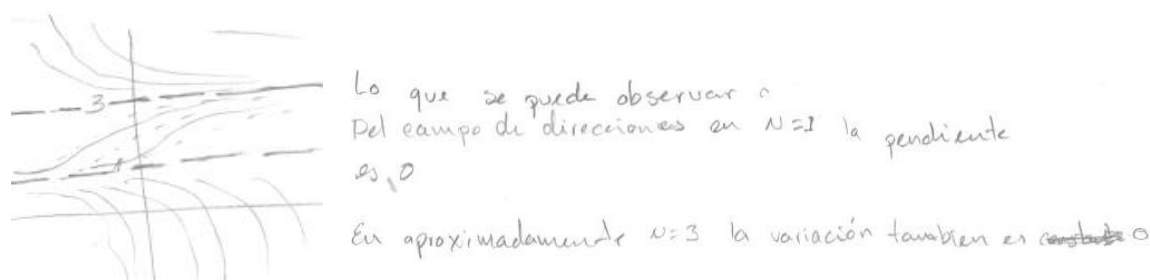 3
1
Lo que se puede observar :
Del campo de direcciones en N=1 la pendiente
es 0
En aproximadamente N=3 la variación tambien es 0